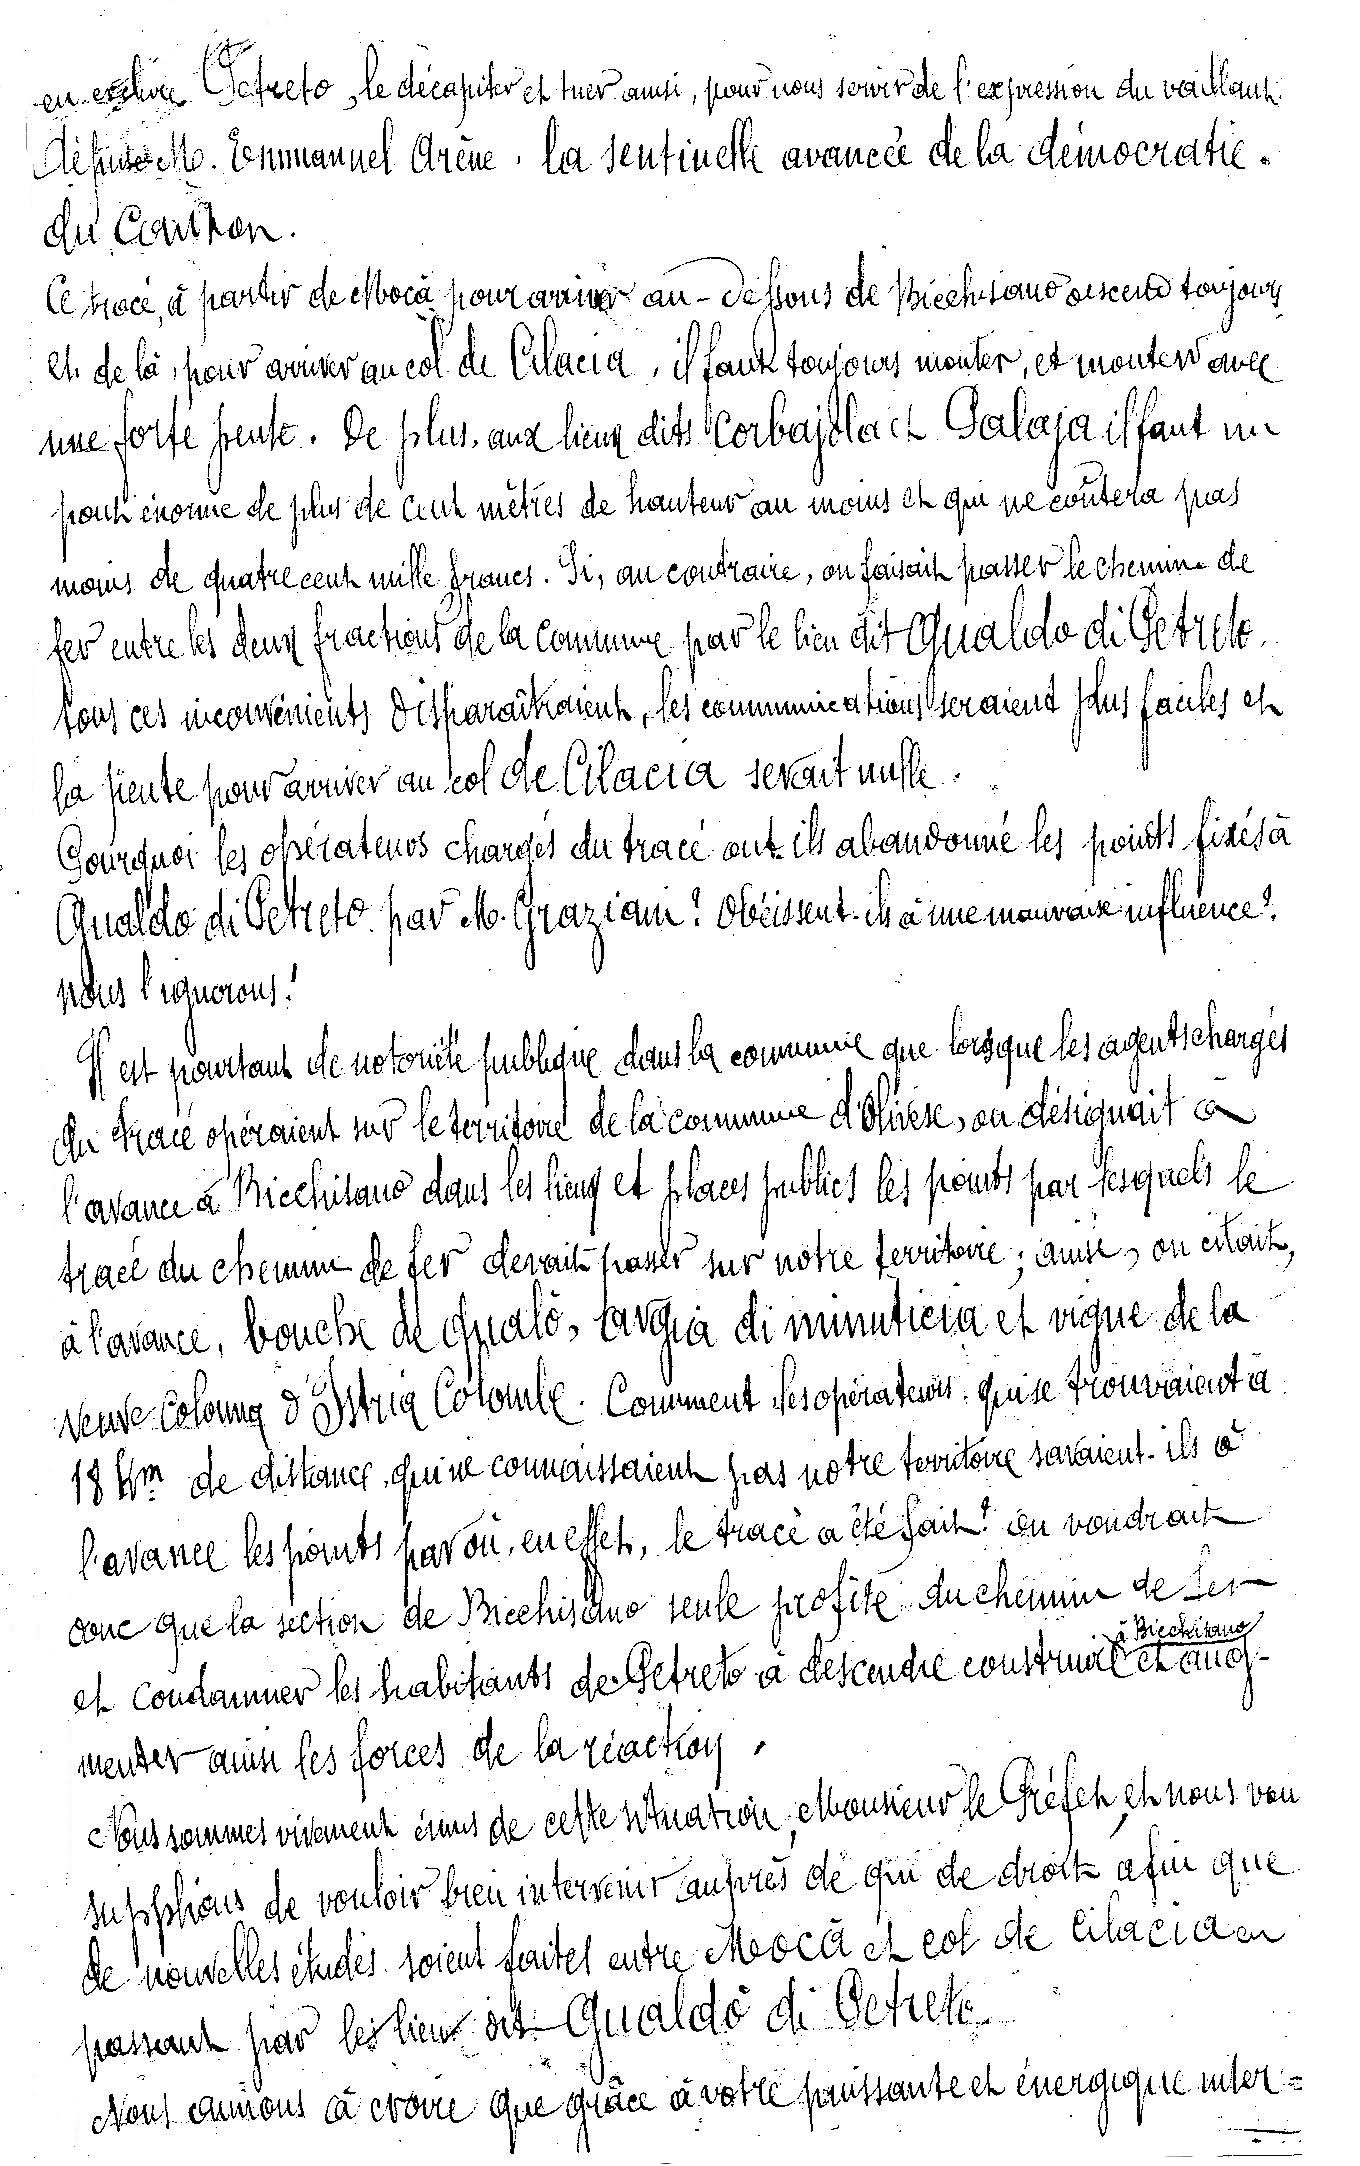 en exclure Petreto, le décapiter et tuer ainsi, pour nous servir de l'expression du vaillant
député M. Emmanuel Arène, la sentinelle avancée de la démocratie.
du Canton.
Ce tracé, à partir de Mocà pour arriver au-dessous de Bicchisano descend toujours
et de là, pour arriver au col de Cilacia, il faut toujours monter, et monter avec
une forte pente. De plus, aux lieux dits Corbajola et Palaja il faut un
pont énorme de plus de cent mètres de hauteur au moins et qui ne coûtera pas
moins de quatre cent mille francs. Si, au contraire, on faisait passer le chemin de
fer entre les deux fractions de la commune par le lieu dit Gualdo di Petreto,
tous ces inconvénients disparaîtraient, les communications seraient plus faciles et
la pente pour arriver au col de Cilacia serait nulle.
Pourquoi les opérateurs chargés du tracé ont-ils abandonné les points fixés à
Gualdo di Petreto par M. Graziani? Obéissent-ils à une mauvaise influence?
nous l'ignorons!
Il est pourtant de notoriété publique dans la commune que lorsque les agents chargés
du tracé opéraient sur le territoire de la commune d'Olivèse, on désignait à
l'avance à Bicchisano dans les lieux et places publics les points par lesquels le
tracé du chemin de fer devait passer sur notre territoire; ainsi, on citait,
à l'avance, bouche de Gualò, largia di minuticia et vigne de la
veuve Colonna d'Istria Colombe. Comment les opérateurs, qui se trouvaient à
18 Km de distance, qui ne connaissaient pas notre territoire savaient-ils à
l'avance les points par où, en effet, le tracé a été fait? on voudrait
donc que la section de Bicchisano seule profite du chemin de fer
et condamner les habitants de Petreto à descendre construire à Bicchisano et aug-
menter ainsi les forces de la réaction.
Nous sommes vivement émus de cette situation, Monsieur le Préfet, et nous vous
supplions de vouloir bien intervenir auprès de qui de droit afin que
de nouvelles études soient faites entre Mocà et col de Cilacia en
passant par les lieux dit Gualdo di Petreto.
Nous aimons à croire que grâce à votre puissante et énergique inter=